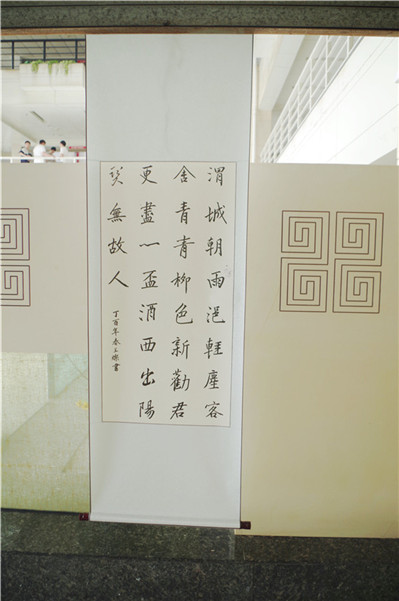 渭城朝雨浥輕塵客
舍青青柳色新勸君
更盡一盃酒西出陽
無故人
丁酉年春王書